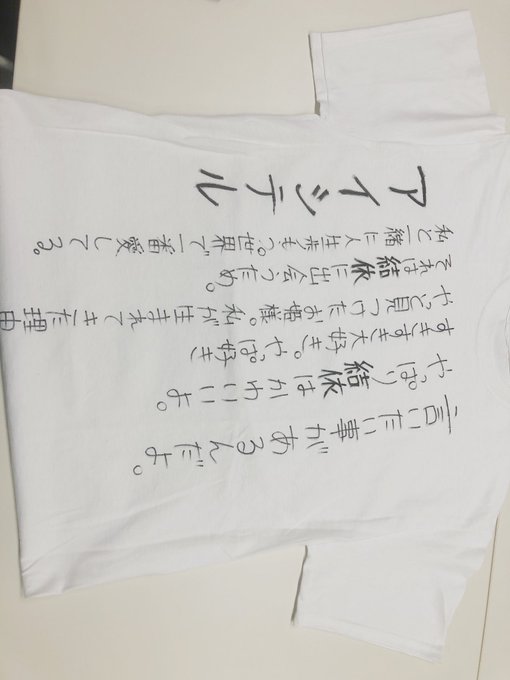 言いたい事があるんだよ。
やっぱり結依はかわいいよ。
すきすき大好き。やっぱ好き
やっと見つけたお姫様。私が生まれてきた理由
それは結依に出会うため。
私と一緒に人生歩もう。世界で一番愛してる。
アイシテル